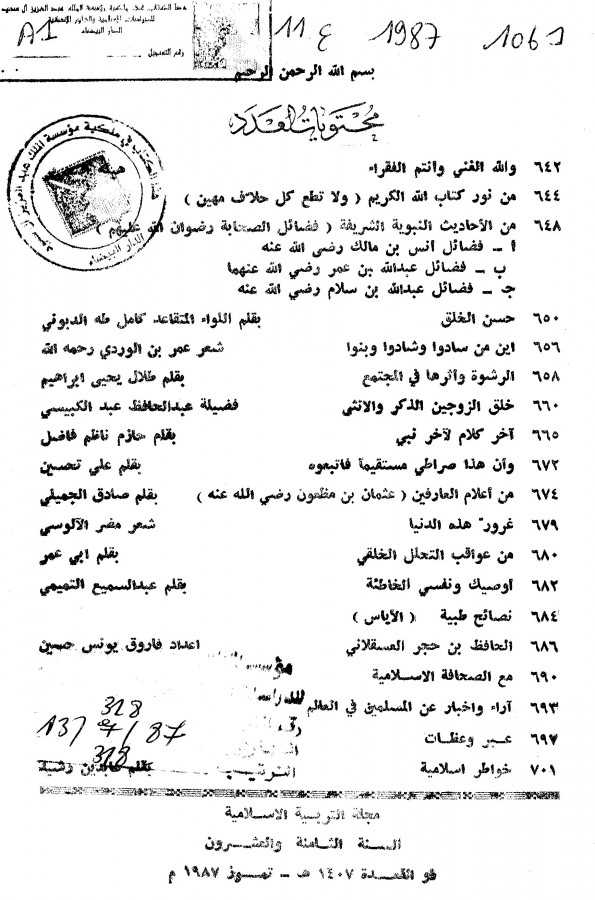 هذا الكتاب في ملكية مؤسسة الملك عبد العزيز آل سعود
للدراسات الإسلامية والعلوم الإنسانية
الدار البيضاء
رقم التسجيل
A1
11 ع 1987 106 ל
بسم الله الرحمن الرحيم
محتويات العدد
هذا الكتاب في ملكية مؤسسة الملك عبد العزيز آل سعود
هبة
الدار البيضاء
٦٤٢ والله الغني وأنتم الفقراء
٦٤٤ من نور كتاب الله الكريم ( ولا تطع كل حلاف مهين )
٦٤٨ من الأحاديث النبوية الشريفة ( فضائل الصحابة رضوان الله عليهم )
أ – فضائل انس بن مالك رضى الله عنه
ب – فضائل عبدالله بن عمر رضي الله عنهما
جـ – فضائل عبدالله بن سلام رضي الله عنه
٦٥٠ حسن الخلق بقلم اللواء المتقاعد كامل طه الدبوني
٦٥٦ اين من سادوا وشادوا وبنوا شعر عمر بن الوردي رحمه الله
٦٥٨ الرشوة وأثرها في المجتمع بقلم طلال يحيى ابراهيم
٦٦٠ خلق الزوجين الذكر والانثى فضيلة عبدالحافظ عبد الكبيسي
٦٦٥ آخر كلام لآخر نبي بقلم حازم ناظم فاضل
٦٧٢ وأن هذا صراطي مستقيماً فاتبعوه بقلم علي تحسين
٦٧٤ من أعلام العارفين ( عثمان بن مظعون رضي الله عنه ) بقلم صادق الجميلي
٦٧٩ غرور هذه الدنيا شعر مضر الآلوسي
٦٨٠ من عواقب التحلل الخلقي بقلم ابي عمر
٦٨٢ اوصيك ونفسي الخاطئة بقلم عبدالسميع التميمي
٦٨٤ نصائح طبية ( الآياس )
٦٨٦ الحافظ بن حجر العسقلاني اعداد فاروق يونس حسين
٦٩٠ مع الصحافة الاسلامية
٦٩٣ آراء واخبار عن المسلمين في العالم
٦٩٧ عبر وعظات
٧٠١ خواطر اسلامية بقلم
328
137 / 87
328
الترتيب
مجلة التربية الاسلامية
السنة الثامنة والعشرون
ذو القعدة ١٤٠٧ هـ – تموز ١٩٨٧ م